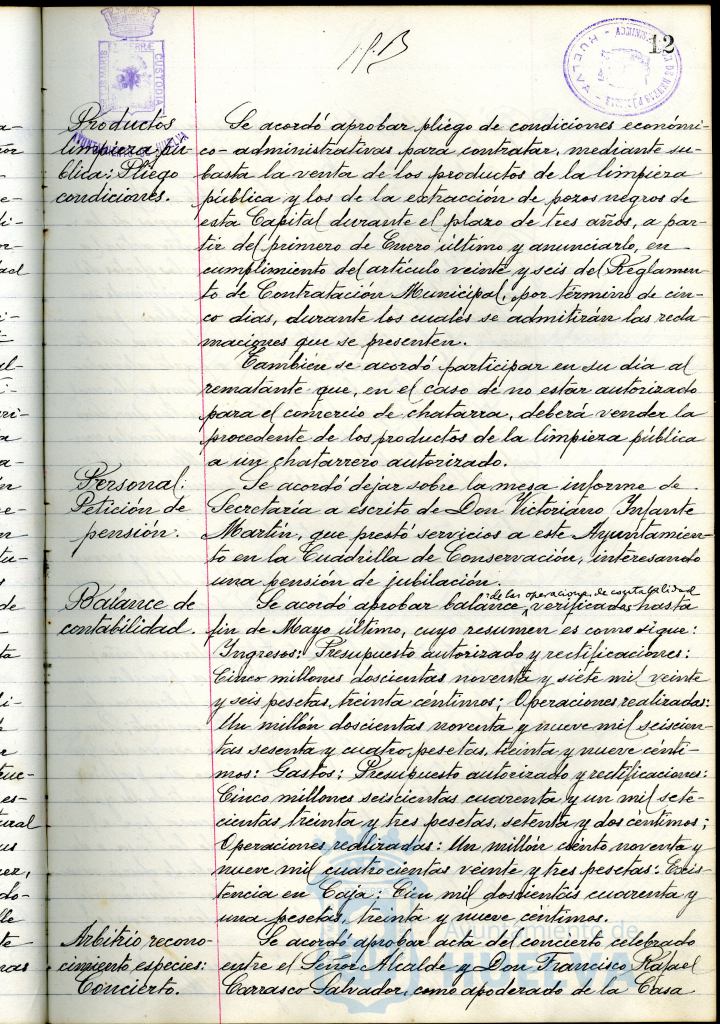 12
Productos
limpieza pú-
blica: Pliego
condiciones.
Se acordó aprobar pliego de condiciones económi-
co-administrativas para contratar, mediante su-
basta la venta de los productos de la limpieza
pública y los de la extracción de pozos negros de
esta Capital durante el plazo de tres años, a par-
tir del primero de Enero último y anunciarlo, en
cumplimiento del artículo veinte y seis del Reglamen-
to de Contratación Municipal, por término de cin-
co dias, durante los cuales se admitirán las recla-
maciones que se presenten.
También se acordó participar en su día al
rematante que, en el caso de no estar autorizado
para el comercio de chatarra, deberá vender la
procedente de los productos de la limpieza pública
a un chatarrero autorizado.
Personal:
Petición de
pensión.
Se acordó dejar sobre la mesa informe de
Secretaria a escrito de Don Victoriano Infante
Martín, que prestó servicios a este Ayuntamien-
to en la Cuadrilla de Conservación, interesando
una pensión de jubilación.
Balance de
contabilidad.
Se acordó aprobar balance de las operaciones de contabilidad verificadas hasta
fin de Mayo último, cuyo resumen es como sigue:
Ingresos: Presupuesto autorizado y rectificaciones:
Cinco millones doscientas noventa y siete mil veinte
y seis pesetas, treinta céntimos; Operaciones realizadas:
Un millón doscientas noventa y nueve mil seiscien-
tas sesenta y cuatro pesetas, treinta y nueve cénti-
mos: Gastos: Presupuesto autorizado y rectificaciones:
Cinco millones seiscientas cuarenta y un mil sete-
cientas treinta y tres pesetas, setenta y dos céntimos;
Operaciones realizadas: Un millón ciento noventa y
nueve mil cuatrocientas veinte y tres pesetas: Exis-
tencia en Caja: Cien mil doscientas cuarenta y
una pesetas, treinta y nueve céntimos.
Arbitrio recono-
cimiento especies:
Concierto.
Se acordó aprobar acta del concierto celebrado
entre el Señor Alcalde y Don Francisco Rafael
Carrasco Salvador, como apoderado de la Casa
Ayuntamiento de
HUELVA